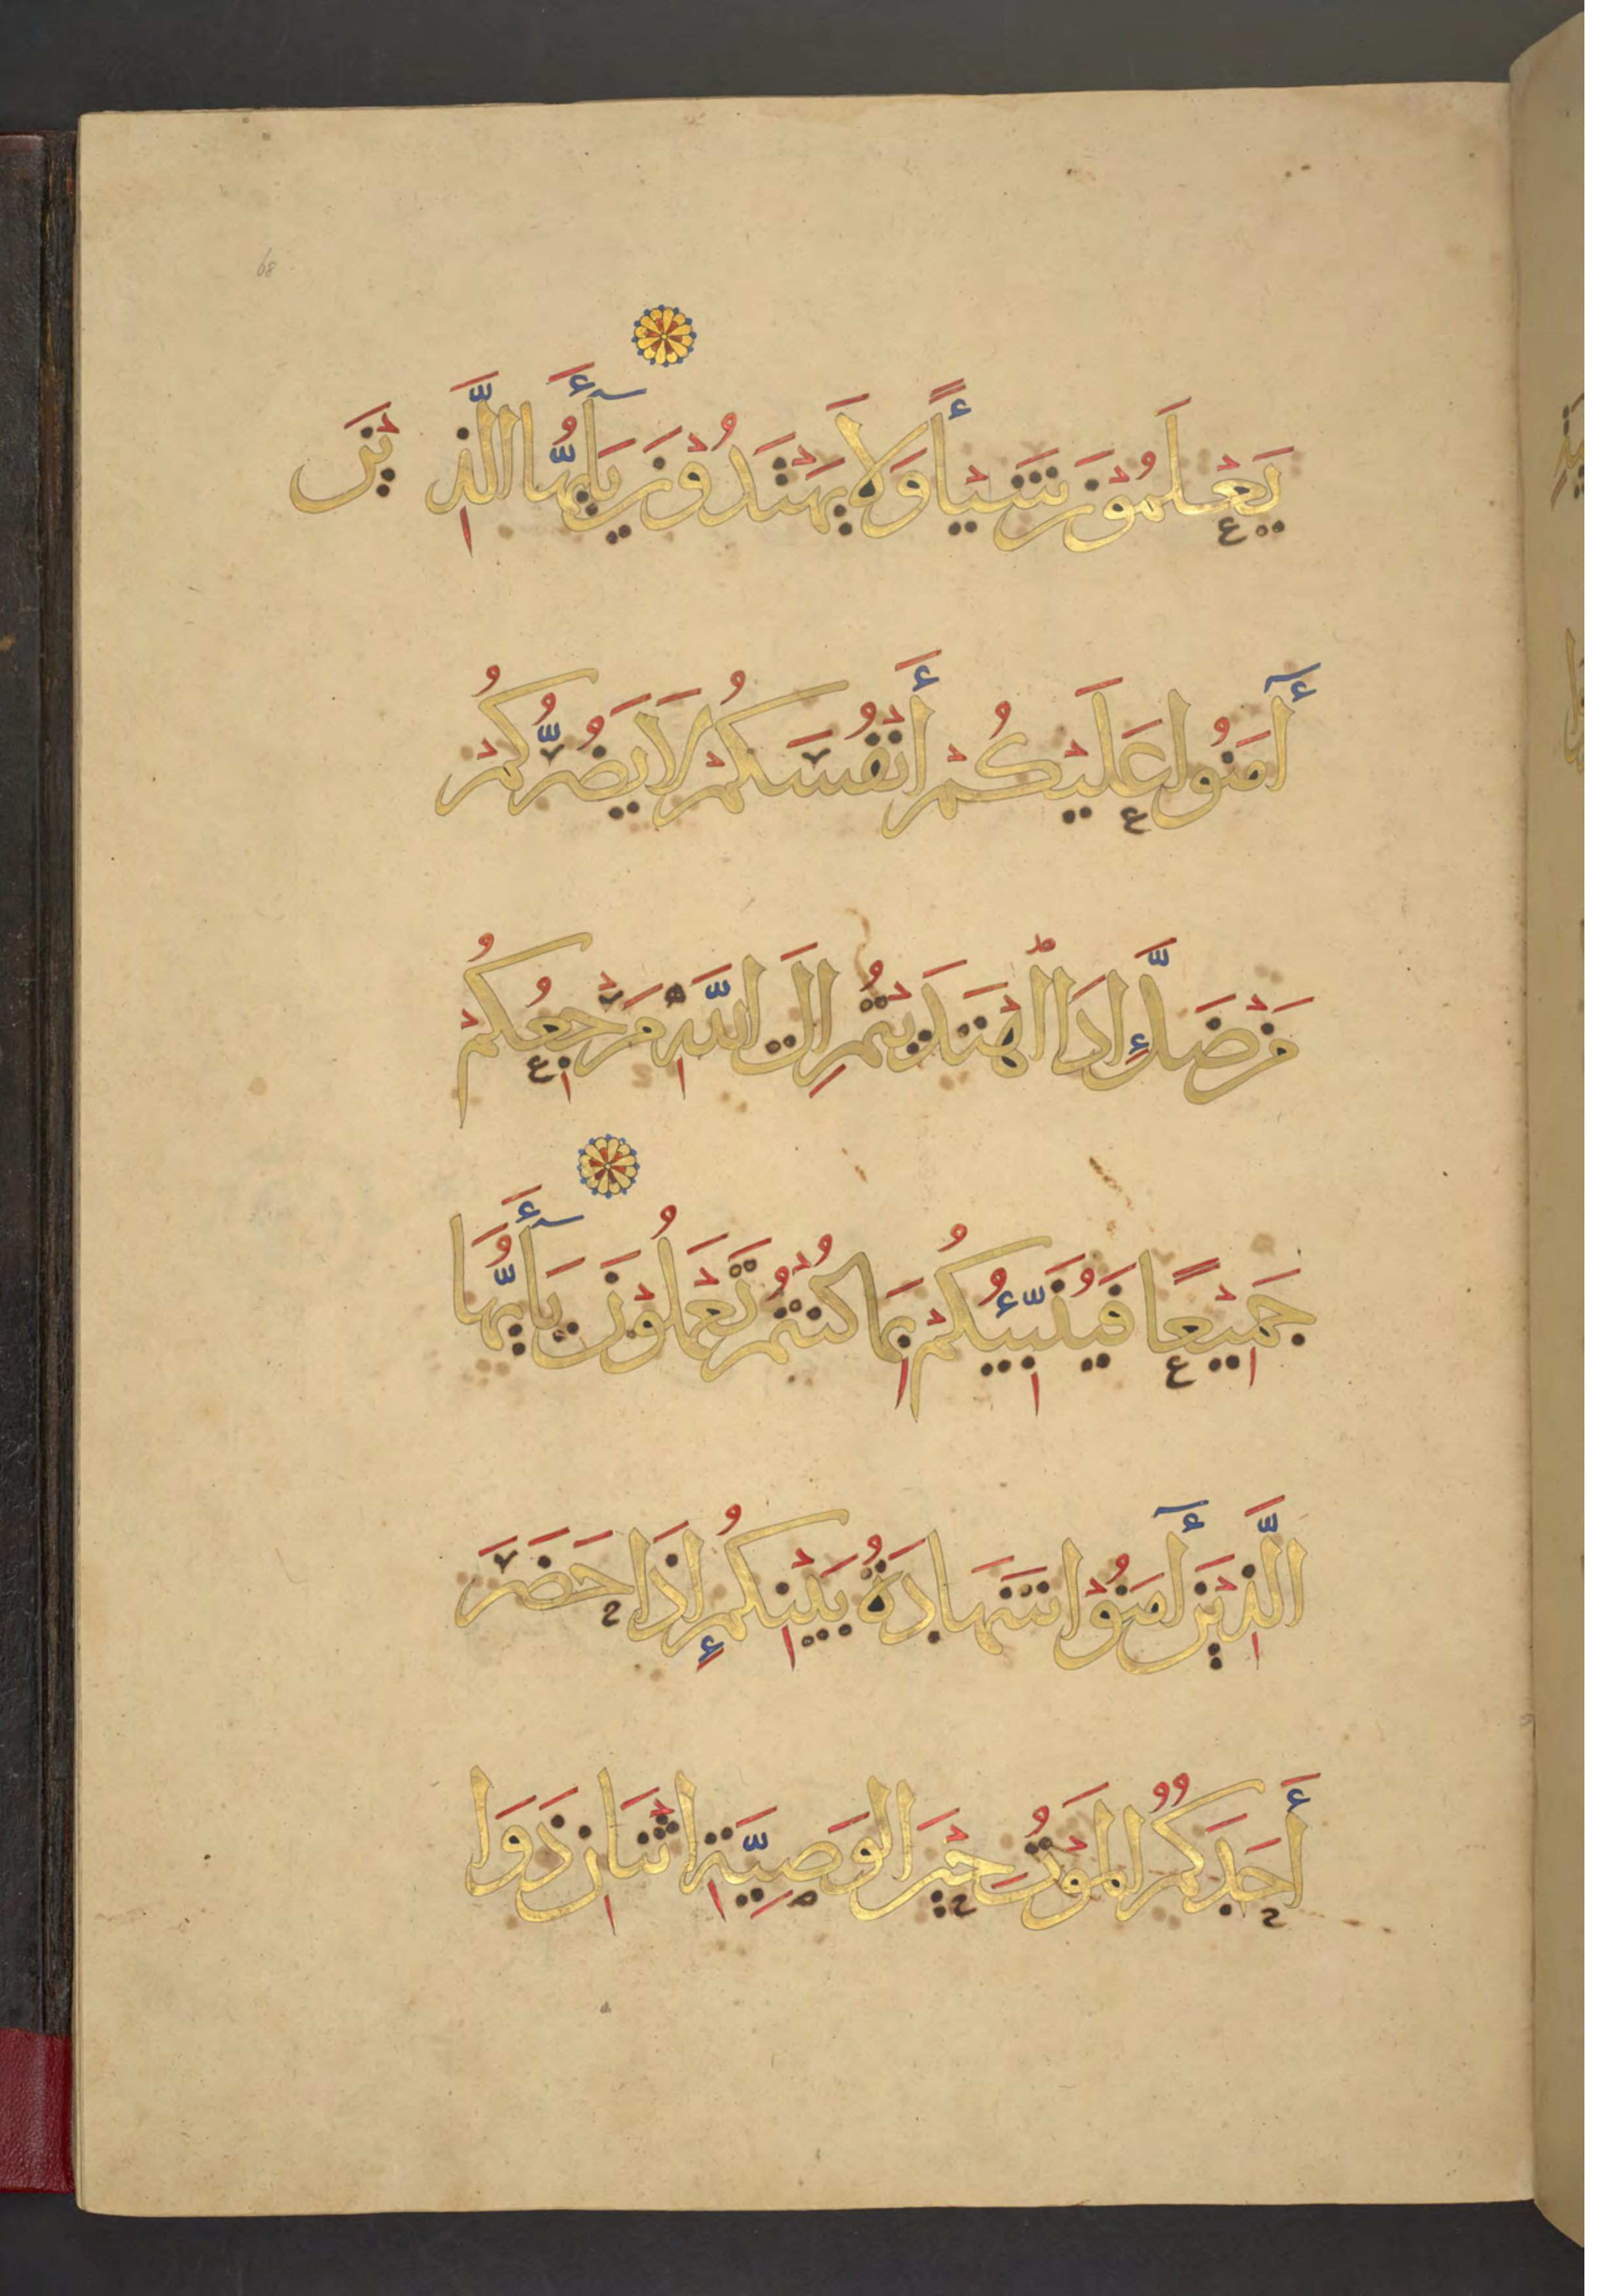 68
يَعْلَمُوْنَ شَيْـأً وَلَا يَهْتَدُوْنَ يَآأَيُّهَا الَّذِيْنَ
أٓمَنُوا عَلَيْكُمْ أَنْفُسَكُمْ لَا يَضُرُّكُمْ
مَنْ ضَلَّ إِذَا اهْتَدَيْتُمْ إِلَى اللَّهِ مَرْجِعُكُمْ
جَمِيْعًا فَيُنَبِّئُكُمْ بِمَا كُنْتُمْ تَعْمَلُوْنَ يَآأَيُّهَا
الَّذِيْنَ أٓمَنُوْا شَهَادَةُ بَيْنِكُمْ إِذَا حَضَرَ
أَحَدَكُمُ الْمَوْتُ حِيْنَ الْوَصِيَّةِ اثْنَانِ ذَوَا